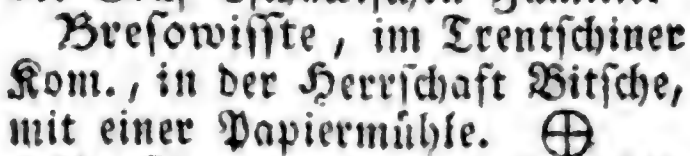 Bresowisste, im Trentschiner
Kom., in der Herrschaft Bitsche,
mit einer Papiermühle. ⊕